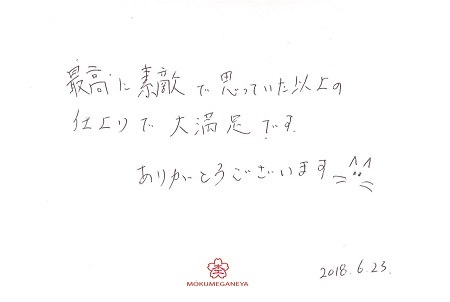 最高に素敵で思っていた以上の
仕上りで大満足です。
ありがとうございます
2018.6.23.
MOKUMEGANEYA